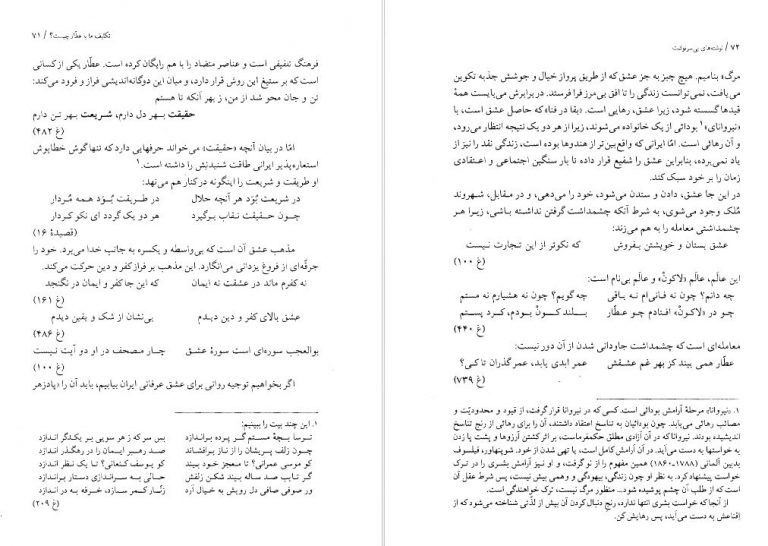 تکلیف ما با عطّار چیست؟ / ۷۱
فرهنگ تلفیقی است و عناصر متضاد را با هم رایگان کرده است. عطّار یکی از کسانی
است که بر ستیغ این روش قرار دارد، و میان این دوگانه‌اندیشی فراز و فرود می‌کند:
تن و جان محو شد از من، ز بهر آنکه تا هستم
حقیقت بهر دل دارم، شریعت بهر تن دارم
(غ ۴۸۲)
امّا در بیان آنچه «حقیقت» می‌خواند حرفهایی دارد که تنها گوش خطاپوش
استعاره‌پذیر ایرانی طاقت شنیدنش را داشته است.۱
او طریقت و شریعت را اینگونه در کنار هم می‌نهد:
در شریعت بُوَد هر آنچه حلال در طریقت بُوَد همه مُردار
چون حقیقت نقاب برگیرد هر دو یک گردد ای نکو کردار
(قصیدهٔ ۱۶)
مذهب عشق آن است که بی‌واسطه و یکسره به جانب خدا می‌برد. خود را
جرقّه‌ای از فروغ یزدانی می‌انگارد. این مذهب بر فراز کفر و دین حرکت می‌کند.
نه کفرم ماند در عشقت نه ایمان که این جا کفر و ایمان در نگنجد
(غ ۱۶۱)
عشق بالای کفر و دین دیدم بی‌نشان از شک و یقین دیدم
(غ ۴۸۶)
بوالعجب سوره‌ای است سورهٔ عشق چار مصحف در او دو آیت نیست
(غ ۱۰۰)
اگر بخواهیم توجیه روانی برای عشق عرفانی ایران بیابیم، باید آن را «پادزهر
۱. این چند بیت را ببینیم:
ترسا بچهٔ مستم گر پرده براندازد بس سر که ز هر سویی بر یکدگر اندازد
چون زلف پریشان را از ناز برافشاند صد رهبر ایمان را در رهگذر اندازد
کو موسی عمرانی؟ تا معجز خود بیند کو یوسف کنعانی؟ تا یک نظر اندازد
گر تایب صد ساله بیند شکن زلفش حالی به سراندازی دستار براندازد
ور صوفی صافی دل رویش به خیال آرد زنّار کمر سازد، خرقه به در اندازد
(غ ۲۰۹)
۷۲ / نوشته‌های بی‌سرنوشت
مرگ» بنامیم. هیچ چیز به جز عشق که از طریق پرواز خیال و جوشش جذبه تکوین
می‌یافت، نمی‌توانست زندگی را تا افق بی‌مرز فرا فرستد. در برابرش می‌بایست همهٔ
قیدها گسسته شود، زیرا عشق، رهایی است. «بقا در فنا» که حاصل عشق است، با
«نیروانای»۱ بودائی از یک خانواده می‌شوند، زیرا از هر دو یک نتیجه انتظار می‌رود،
و آن رهائی است. امّا ایرانی که واقع‌بین‌تر از هندوها بوده است، زندگی نقد را نیز از
یاد نمی‌برده، بنابراین عشق را شفیع قرار داده تا بار سنگین اجتماعی و اعتقادی
زمان را بر خود سبک کند.
در این جا عشق، دادن و ستدن می‌شود، خود را می‌دهی، و در مقابل، شهروند
مُلک وجود می‌شوی، به شرط آنکه چشمداشت گرفتن نداشته باشی، زیرا هر
چشمداشتی معامله را به هم می‌زند:
عشق بستان و خویشتن بفروش که نکوتر از این تجارت نیست
(غ ۱۰۰)
این عالَم، عالَم «لاکَونْ» و عالَم بی‌نام است:
چه دانم؟ چون نه فانی‌ام نه باقی چه گویم؟ چون نه هشیارم نه مستم
چو در «لاکَونْ» افتادم چو عطّار بلند کَونْ بودم، کرد پستم
(غ ۴۴۰)
معامله‌ای است که چشمداشت جاودانی شدن از آن دور نیست:
عطّار همی بیند کز بهر غم عشقش عمر ابدی یابد، عمر گذران تا کی؟
(غ ۷۳۹)
۱. «نیروانا» مرحلهٔ آرامش بودائی است. کسی که در نیروانا قرار گرفت، از قیود و محدودیّت و
مصائب رهائی می‌یابد. چون بودائیان به تناسخ اعتقاد داشتند، آن را برای رهائی از رنج تناسخ
اندیشیده بودند. نیروانا که در آن آزادی مطلق حکمفرماست، بر اثر کشتن آرزوها و پشت پا زدن
به خواستها به دست می‌آید. در آن آرامش کامل است، یا تهی شدن از خود. شوپنهاور، فیلسوف
بدبین آلمانی (۱۷۸۸-۱۸۶۰) همین مفهوم را از نو گرفت، و او نیز آرامش بشری را در ترک
خواست پیشنهاد کرد. به نظر او چون زندگی، بیهودگی و وهمی بیش نیست، پس شرط عقل آن
است که از طلب آن چشم پوشیده شود... منظور مرگ نیست، ترک خواهندگی است.
از آنجا که خواست بشری انتها ندارد، رنج دنبال کردن آن بیش از لذّتی شناخته می‌شود که از
اِقناعش به دست می‌آید، پس رهایش کن.